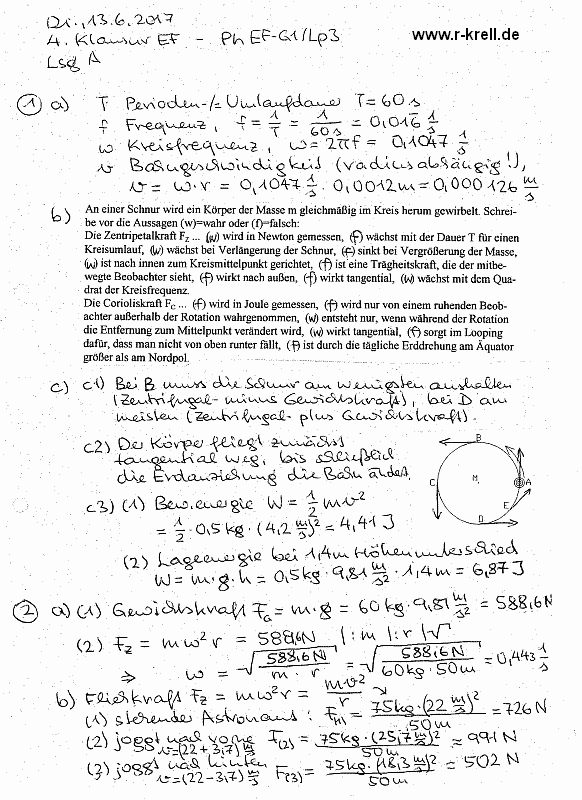 Di., 13.6.2017
www.r-krell.de
4. Klausur EF - Ph EF-G1/Lp3
Lsg A
① a) T Perioden-/= Umlaufdauer T = 60 s
f Frequenz, f = 1/T = 1/60s = 0,016 1/s
ω Kreisfrequenz, ω = 2πf = 0,1047 1/s
v Bahngeschwindigkeit (radiusabhängig!),
v = ω·r = 0,1047 1/s · 0,0012m = 0,000126 m/s
b) An einer Schnur wird ein Körper der Masse m gleichmäßig im Kreis herum gewirbelt. Schrei-
be vor die Aussagen (w)=wahr oder (f)=falsch:
Die Zentripetalkraft Fz ... (w) wird in Newton gemessen, (f) wächst mit der Dauer T für einen
Kreisumlauf, (w) wächst bei Verlängerung der Schnur, (f) sinkt bei Vergrößerung der Masse,
(w) ist nach innen zum Kreismittelpunkt gerichtet, (f) ist eine Trägheitskraft, die der mitbe-
wegte Beobachter sieht, (f) wirkt nach außen, (f) wirkt tangential, (w) wächst mit dem Qua-
drat der Kreisfrequenz.
Die Corioliskraft Fc ... (f) wird in Joule gemessen, (f) wird nur von einem ruhenden Beob-
achter außerhalb der Rotation wahrgenommen, (w) entsteht nur, wenn während der Rotation
die Entfernung zum Mittelpunkt verändert wird, (w) wirkt tangential, (f) sorgt im Looping
dafür, dass man nicht von oben runter fällt, (f) ist durch die tägliche Erddrehung am Äquator
größer als am Nordpol.
c) c1) Bei B muss die Schnur am wenigsten aushalten
(Zentrifugal- minus Gewichtskraft), bei D am
meisten (Zentrifugal- plus Gewichtskraft).
c2) Der Körper fliegt zunächst
tangential weg, bis schließlich
die Erdanziehung die Bahn ändert.
B
C
M
A
E
D
c3) (1) Bew.energie W = 1/2 mv²
= 1/2 · 0,5kg · (4,2 m/s)² = 4,41 J
(2) Lageenergie bei 1,4m Höhenunterschied
W = m·g·h = 0,5kg · 9,81 m/s² · 1,4m = 6,87 J
② a) (1) Gewichtskraft FG = m·g = 60kg · 9,81 m/s² = 588,6N
(2) Fz = mω²r = 588,6N |:m |:r |√
⇒ ω = √(588,6N / m·r) = √(588,6N / 60kg·50m) = 0,443 1/s
b) Fliehkraft Fz = mω²r = mv²/r
(1) stehender Astronaut: F(1) = 75kg·(22 m/s)² / 50m = 726 N
(2) joggt nach vorne F(2) = 75kg·(25,7 m/s)² / 50m = 991 N
v=(22+3,7) m/s
(3) joggt nach hinten F(3) = 75kg·(18,3 m/s)² / 50m = 502 N
v=(22-3,7) m/s